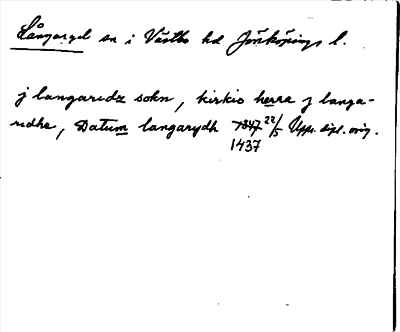 Långaryd sn i Västbo hd Jönköpings l.
j langaridz sokn, kirkio herra j langa-
ridhe, Datum langarydh 1347 22/5 Upps. dipl. orig.
1437